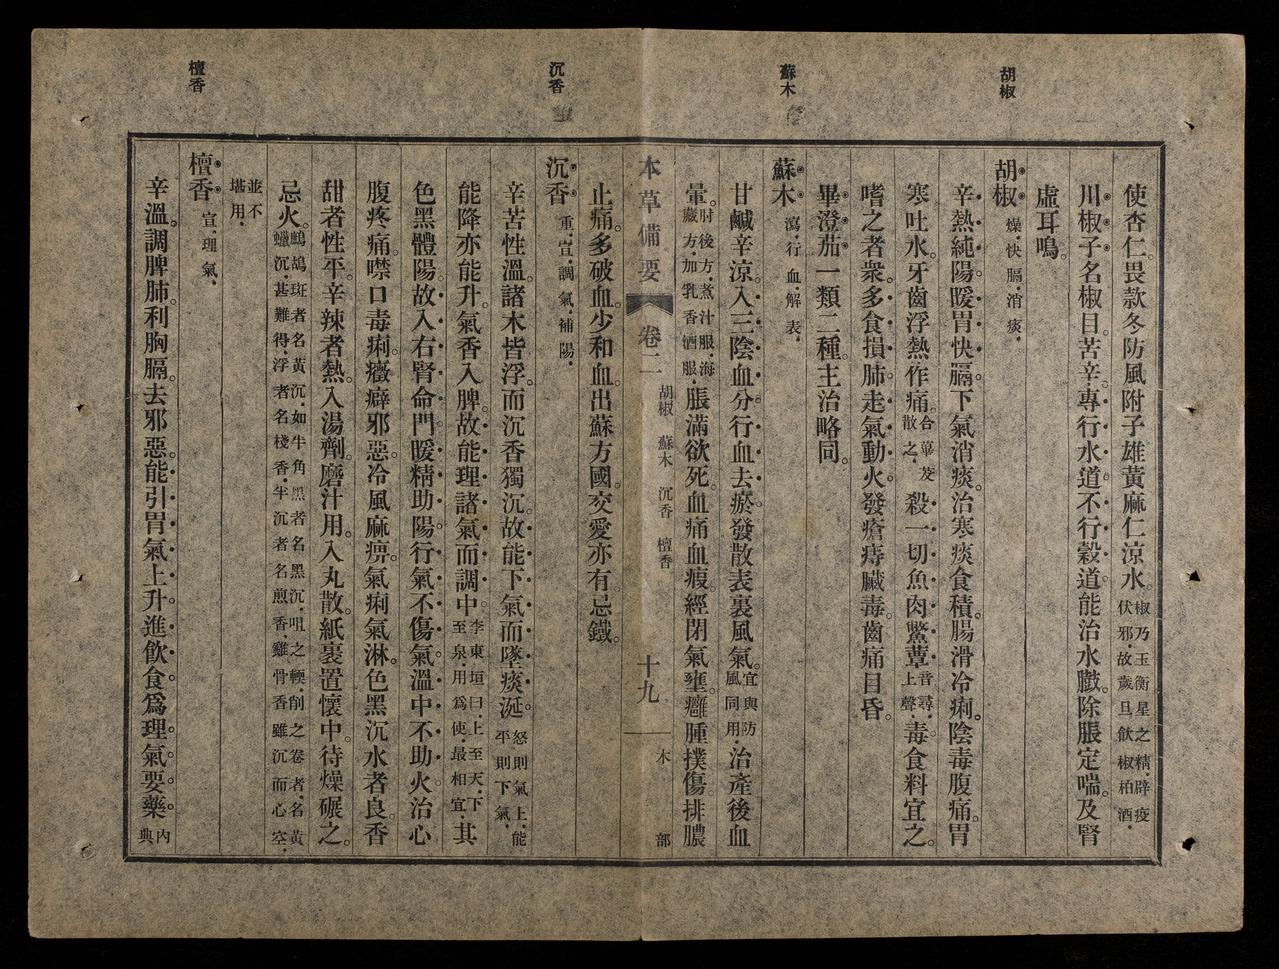 胡椒
蘇木
沉香
檀香
使杏仁。畏款冬防風附子雄黃麻仁涼水。椒乃玉衡星之精.辟疫伏邪.故歲旦飲椒柏酒.
川椒子名椒目。苦辛。專行水道不行穀道。能治水臌。除脹定喘。及腎
虛耳鳴。
胡椒 燥.快膈.消痰.
辛熱純陽。暖胃快膈。下氣消痰。治寒痰食積。腸滑冷痢。陰毒腹痛。胃
寒吐水。牙齒浮熱作痛。合蓽茇散之.殺一切魚肉鱉蕈音尋.上聲.毒。食料宜之。
嗜之者衆。多食損肺。走氣動火。發瘡痔臟毒。齒痛目昏。
畢澄茄一類二種。主治略同。
蘇木 瀉.行血.解表.
甘鹹辛涼。入三陰血分。行血去瘀。發散表裏風氣。宜與防風同用.治產後血
暈。肘後方.煮汁服.海藏方.加乳香酒服.脹滿欲死。血痛血瘕。經閉氣壅。癰腫撲傷。排膿
止痛。多破血。少和血。出蘇方國。交愛亦有。忌鐵。
本草備要 卷二 胡椒 蘇木 沉香 檀香 十九 木部
沉香 重.宣.調氣.補陽.
辛苦性溫。諸木皆浮。而沉香獨沉。故能下氣而墜痰涎。怒則氣上.能平則下氣.
能降亦能升。氣香入脾。故能理諸氣而調中。李東垣曰.上至天.下至泉.用爲使.最相宜.其
色黑體陽。故入右腎命門。暖精助陽。行氣不傷氣。溫中不助火。治心
腹疼痛。噤口毒痢。癥癖邪惡。冷風麻痹。氣痢氣淋。色黑沉水者良。香
甜者性平。辛辣者熱。入湯劑。磨汁用。入丸散。紙裹置懷中。待燥碾之。
忌火。鷓鴣斑者名黃沉.如牛角黑者名黑沉.咀之輭.削之卷者.名黃蠟沉.甚難得.浮者名棧香.半沉者名煎香.雞骨香雖沉而心空.
並不堪用.
檀香 宣.理氣.
辛溫。調脾肺。利胸膈。去邪惡。能引胃氣上升。進飲食。爲理氣要藥。內典